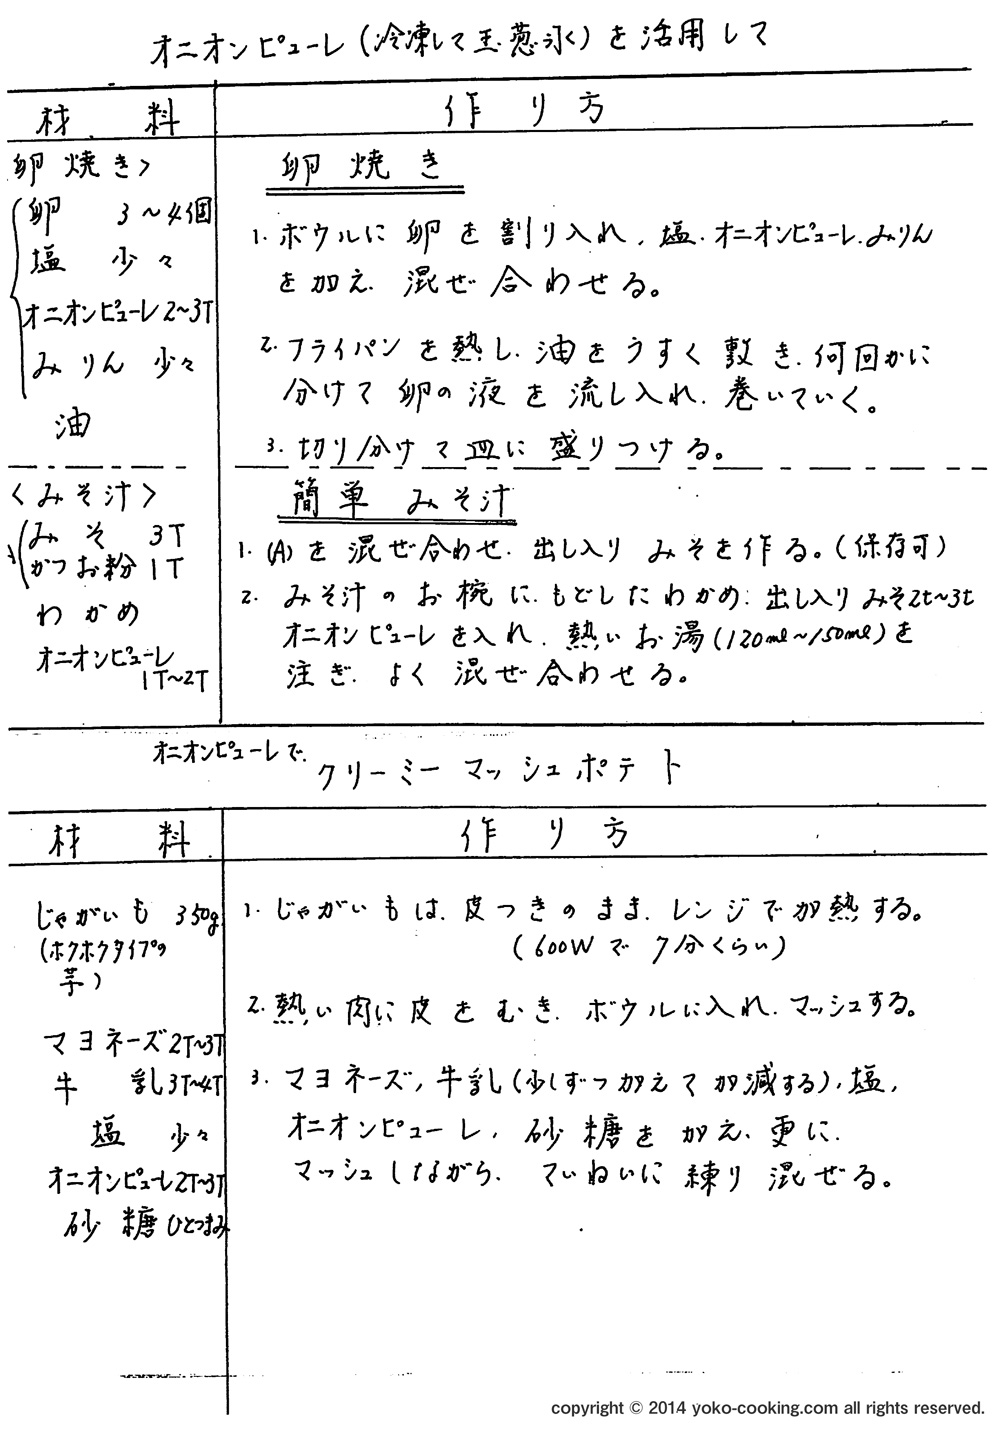 オニオンピューレ(冷凍して玉葱氷)を活用して
材料
作り方
卵焼き>
卵 3~4個
塩 少々
オニオンピューレ2~3T
みりん 少々
油
卵焼き
1. ボウルに卵を割り入れ、塩、オニオンピューレ、みりん
を加え、混ぜ合わせる。
2. フライパンを熱し、油をうすく敷き、何回かに
分けて卵の液を流し入れ、巻いていく。
3. 切り分けて皿に盛りつける。
<みそ汁>
みそ 3T
かつお粉 1T
わかめ
オニオンピューレ
1T~2T
簡単 みそ汁
1. (A)を混ぜ合わせ、出し入りみそを作る。(保存可)
2. みそ汁のお椀に、もどしたわかめ、出し入りみそ2t~3t
オニオンピューレを入れ、熱いお湯(120ml~150ml)を
注ぎ、よく混ぜ合わせる。
オニオンピューレで、
クリーミーマッシュポテト
材料
作り方
じゃがいも 350g
(ホクホクタイプの
芋)
マヨネーズ2T~3T
牛乳3T~4T
塩 少々
オニオンピューレ2T~3T
砂糖 ひとつまみ
1. じゃがいもは、皮つきのまま、レンジで加熱する。
(600Wで 7分くらい)
2. 熱い内に皮をむき、ボウルに入れ、マッシュする。
3. マヨネーズ、牛乳(少しずつ加えて加減する)、塩、
オニオンピューレ、砂糖を加え、更に、
マッシュしながら、ていねいに練り混ぜる。
copyright © 2014 yoko-cooking.com all rights reserved.